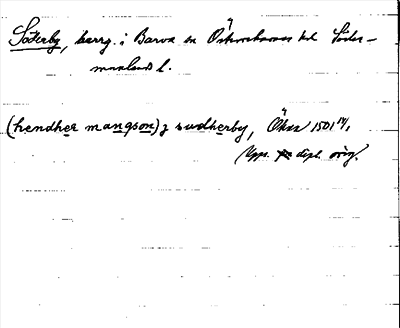 Söderby, herrg. i Barva sn Österrekarne hd Söder-
manlands l.
(hendher mangson) j sudherby, Ökna 1501 14/1
Upps. dipl. orig.